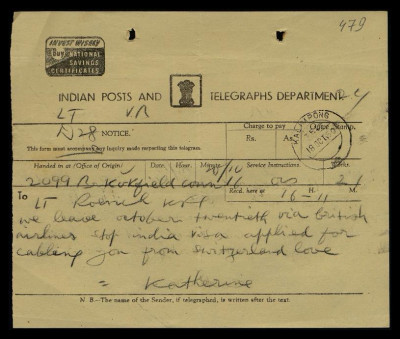 479
INVEST WISELY
Buy NATIONAL
SAVINGS
CERTIFICATES
INDIAN POSTS AND TELEGRAPHS DEPARTMENT
LT VR
N 28 NOTICE.
This form must accompany any inquiry made respecting this telegram.
Charge to pay Office Stamp.
Rs. As.
KALIMPONG
Handed in at (Office of Origin) Date. Hour. Minute. Service Instructions
2099 Rokfield conn 28/10 ors 21
Recd. here at 16 H. 11 M.
To LT
we leave october twentieth via British
airlines stop india visa applied for
cabling you from switzerland love
= Katherine
N. B.—The name of the Sender, if telegraphed, is written after the text.